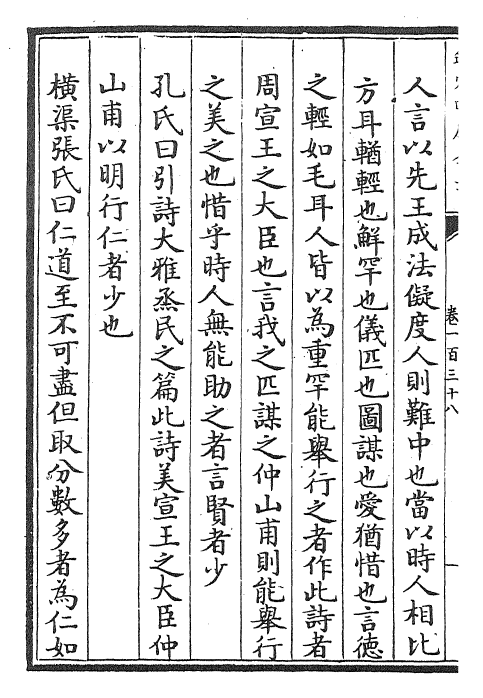 人言以先王成法儗度人則難中也當以時人相比
方耳輶輕也鮮罕也儀匹也圖謀也愛猶惜也言德
之輕如毛耳人皆以為重罕能舉行之者作此詩者
周宣王之大臣也言我之匹謀之仲山甫則能舉行
之美之也惜乎時人無能助之者言賢者少
孔氏曰引詩大雅烝民之篇此詩美宣王之大臣仲
山甫以明行仁者少也
橫渠張氏曰仁道至不可盡但取分數多者為仁如
卷一百三十八